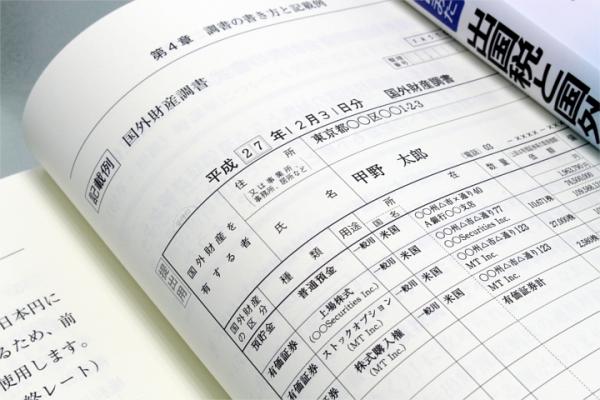 第4章 調書の書き方と記載例
国外財産調書
記載例
平成27年12月31日分 国外財産調書
提出用
国外財産を
有する者
住所
又は事業所、
事務所、居所など
東京都〇〇区〇〇1-2-3
氏名
甲野 太郎
(電話) 03
国外財産
の区分
種類
用途
所在
国名
数量
価額
預貯金
普通預金
一般用
米国
〇〇州△市×通り40
A銀行〇〇支店
有価証券
上場株式
(〇〇Securities Inc.)
一般用
米国
〇〇州△市△通り77
〇〇Securities Inc.
10,671株
有価証券
ストックオプション
(MT Inc.)
一般用
米国
〇〇州△市△通り123
MT Inc.
27,000株
有価証券
株式購入権
(MT Inc.)
一般用
米国
〇〇州△市△通り123
MT Inc.
有価証券計
出国税と国外
日本円に
るため、前
使用します。
終レート)